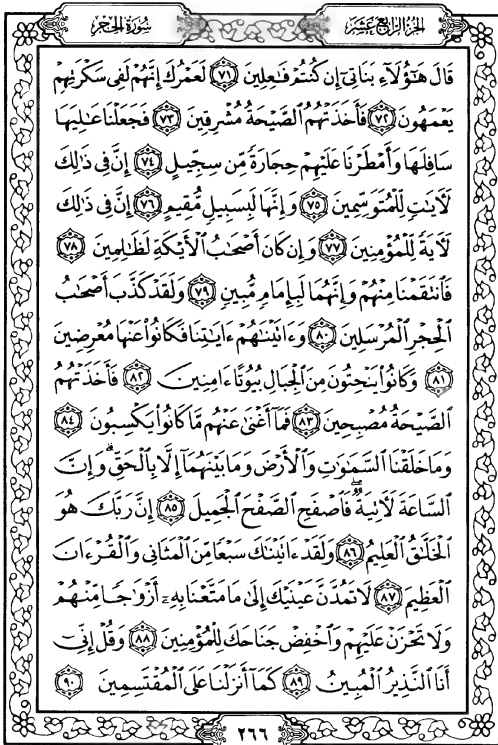 سُورَةُ الحِجْرِ
الجزء الرابع عشر
قَالَ هَٰٓؤُلَآءِ بَنَاتِىٓ إِن كُنتُمْ فَٰعِلِينَ ٧١ لَعَمْرُكَ إِنَّهُمْ لَفِى سَكْرَتِهِمْ
يَعْمَهُونَ ٧٢ فَأَخَذَتْهُمُ ٱلصَّيْحَةُ مُشْرِقِينَ ٧٣ فَجَعَلْنَا عَٰلِيَهَا
سَافِلَهَا وَأَمْطَرْنَا عَلَيْهِمْ حِجَارَةً مِّن سِجِّيلٍ ٧٤ إِنَّ فِى ذَٰلِكَ
لَءَايَٰتٍ لِّلْمُتَوَسِّمِينَ ٧٥ وَإِنَّهَا لَبِسَبِيلٍ مُّقِيمٍ ٧٦ إِنَّ فِى ذَٰلِكَ
لَءَايَةً لِّلْمُؤْمِنِينَ ٧٧ وَإِن كَانَ أَصْحَٰبُ ٱلْأَيْكَةِ لَظَٰلِمِينَ ٧٨
فَٱنتَقَمْنَا مِنْهُمْ وَإِنَّهُمَا لَبِإِمَامٍ مُّبِينٍ ٧٩ وَلَقَدْ كَذَّبَ أَصْحَٰبُ
ٱلْحِجْرِ ٱلْمُرْسَلِينَ ٨٠ وَءَاتَيْنَٰهُمْ ءَايَٰتِنَا فَكَانُوا۟ عَنْهَا مُعْرِضِينَ
٨١ وَكَانُوا۟ يَنْحِتُونَ مِنَ ٱلْجِبَالِ بُيُوتًا ءَامِنِينَ ٨٢ فَأَخَذَتْهُمُ
ٱلصَّيْحَةُ مُصْبِحِينَ ٨٣ فَمَآ أَغْنَىٰ عَنْهُم مَّا كَانُوا۟ يَكْسِبُونَ ٨٤
وَمَا خَلَقْنَا ٱلسَّمَٰوَٰتِ وَٱلْأَرْضَ وَمَا بَيْنَهُمَآ إِلَّا بِٱلْحَقِّ ۗ وَإِنَّ
ٱلسَّاعَةَ لَءَاتِيَةٌ ۖ فَٱصْفَحِ ٱلصَّفْحَ ٱلْجَمِيلَ ٨٥ إِنَّ رَبَّكَ هُوَ
ٱلْخَلَّٰقُ ٱلْعَلِيمُ ٨٦ وَلَقَدْ ءَاتَيْنَٰكَ سَبْعًا مِّنَ ٱلْمَثَانِى وَٱلْقُرْءَانَ
ٱلْعَظِيمَ ٨٧ لَا تَمُدَّنَّ عَيْنَيْكَ إِلَىٰ مَا مَتَّعْنَا بِهِۦٓ أَزْوَٰجًا مِّنْهُمْ
وَلَا تَحْزَنْ عَلَيْهِمْ وَٱخْفِضْ جَنَاحَكَ لِلْمُؤْمِنِينَ ٨٨ وَقُلْ إِنِّىٓ
أَنَا ٱلنَّذِيرُ ٱلْمُبِينُ ٨٩ كَمَآ أَنزَلْنَا عَلَى ٱلْمُقْتَسِمِينَ ٩٠
٢٦٦